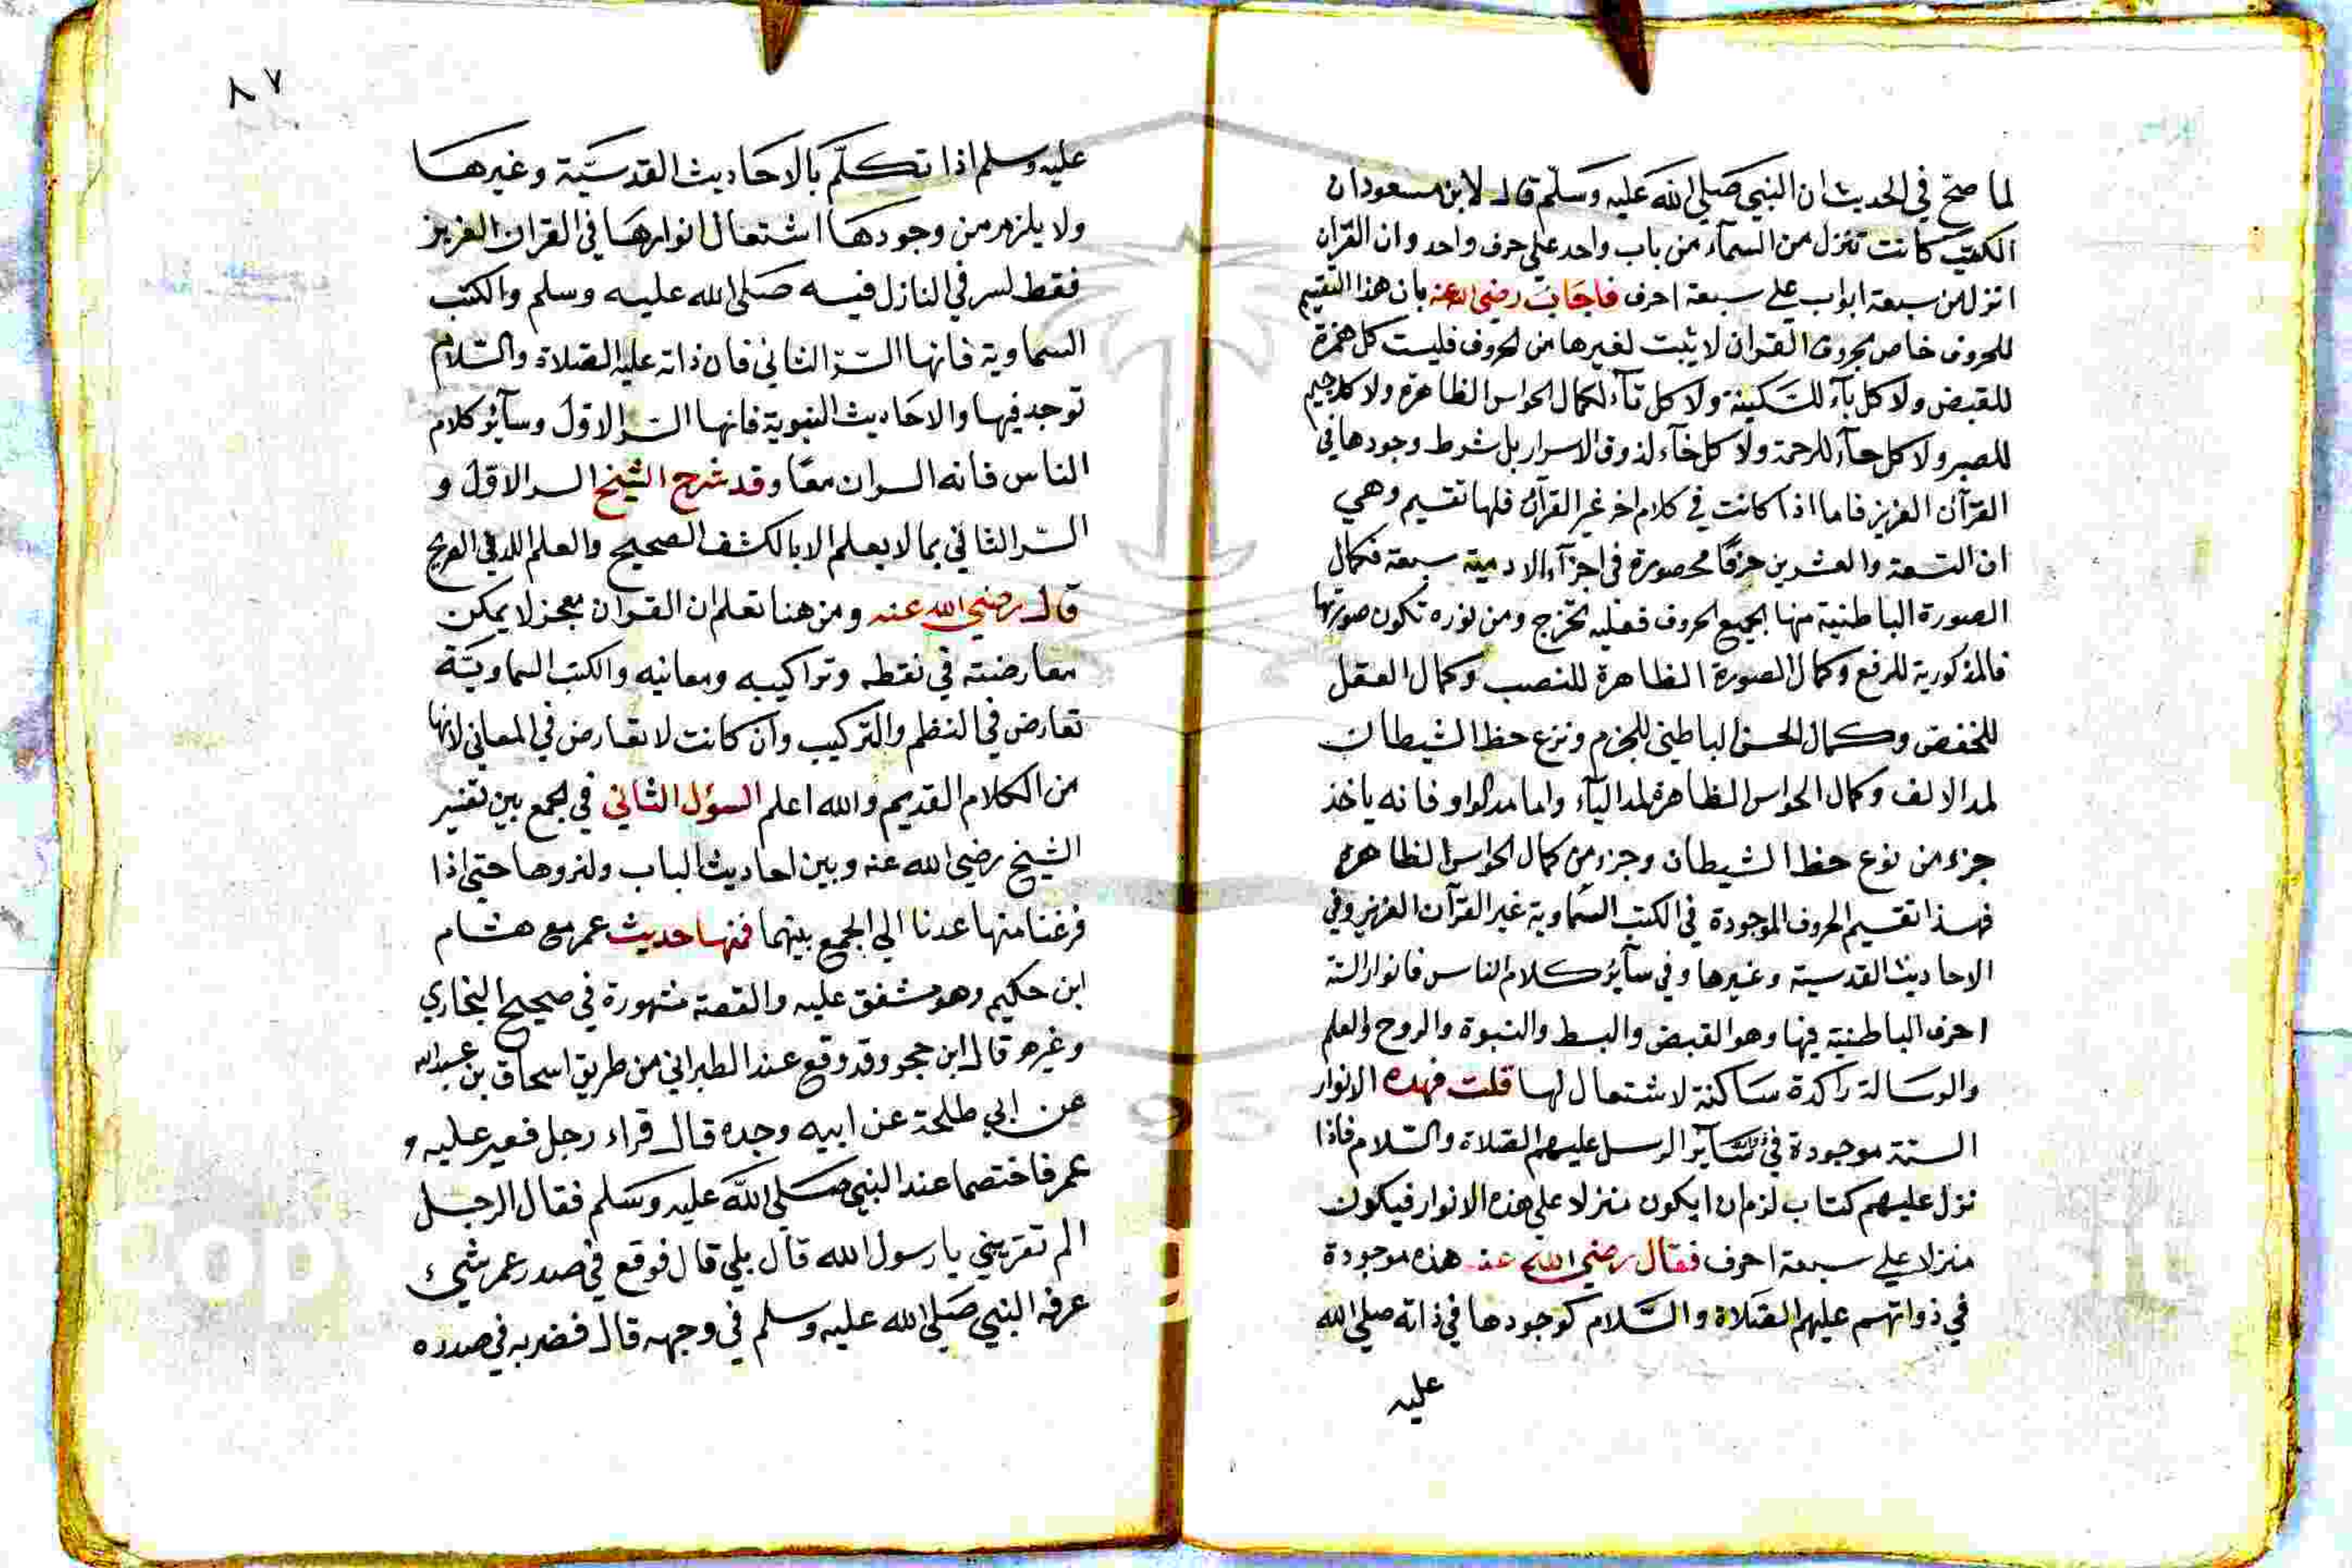 لما صح في الحديث ان النبي صلي الله عليه وسلم قال لابن مسعود ان
الكتب كانت تنزل من السمآء من باب واحد علي حرف واحد وان القرآن
انزل من سبعة ابواب علي سبعة احرف فاجاب رضي الله عنه بان هذا التقسيم
للحروف خاص بحروف القرآن لا يثبت لغيرها من الحروف فليست كل همزة
للقبض ولا كل بآء للسكينة ولا كل تآء لكمال الحواس الظاهرة ولا كل جيم
للصبر ولا كل حآء للرحمة ولا كل خآء لذوق الاسرار بل شرط وجودها في
القرآن العزيز فاما اذا كانت في كلام اخر غير القرآن فلها تقسيم وهي
ان التسعة والعشرين حرفًا محصورة في اجزآء الادمية سبعة فكمال
الصورة الباطنية منها لجميع الحروف فعليه تخرج ومن نوره تكون صورتها
فالمذكورية للرفع وكمال الصورة الظاهرة للنصب وكمال العقل
للخفض وكمال الحس الباطني للجزم ونزع حظ الشيطان
لمد الالف وكمال الحواس الظاهرة لمد اليآء واما مد الواو فانه ياخذ
جزء من نوع حظ الشيطان وجزء من كمال الحواس الظاهره
فهذا تقسيم الحروف الموجودة في الكتب السماوية غير القرآن العزيز وفي
الاحاديث القدسية وغيرها وفي سآئر كلام الناس فانوار الستة
احرف الباطنية فيها وهو القبض والبسط والنبوة والروح والعلم
والرسالة راكدة ساكنة لا شتعال لها قلت فهذه الانوار
الستة موجودة في سآير الرسل عليهم الصلاة والسلام فاذا
نزل عليهم كتاب لزم ان ايكون منزلا علي هذه الانوار فيكون
منزلا علي سبعة احرف فقال رضي الله عنه هذه موجودة
في ذواتهم عليهم الصلاة والسلام كوجودها في ذاته صلي الله
عليه
٨٧
عليه وسلم اذا تكلّم بالاحاديث القدسيّة وغيرها
ولا يلزم من وجودها اشتعال انوارها في القران العزيز
فقط لسر في النازل فيه صلى الله عليه وسلم والكتب
السماوية فانها السّر الثاني فان ذاته عليه الصلاة والسّلام
توجد فيها والاحاديث النبوية فانها السر الاول وسآئر كلام
الناس فانه السران معًا وقد شرح الشيخ السر الاول و
السّر الثاني بما لا يعلم الا بالكشف الصحيح والعلم اللدني الفريح
قال رضي الله عنه ومن هنا تعلم ان القران معجز لا يمكن
معارضته في نقطه وتراكيبه ومعانيه والكتب السماويّة
تعارض في النظم والتركيب وان كانت لا تعارض في المعاني لانها
من الكلام القديم والله اعلم السؤل الثاني في الجمع بين تفسير
الشيخ رضي الله عنه وبين احاديث الباب ولنروها حتي اذا
فرغنا منها عدنا الي الجمع بينهما فمنها حديث عمر مع هشام
ابن حكيم وهو متفق عليه والقصة مشهورة في صحيح البخاري
وغيره قال ابن حجر وقد وقع عند الطبراني من طريق اسحاق بن عبد الله
عن ابي طلحة عن ابيه وجده قال قراء رجل فعير عليه و
عمر فاختصما عند النبي صلي الله عليه وسلم فقال الرجل
الم تقريني يا رسول الله قال بلي قال فوقع في صدر عمر شيء
عرفه النبي صلي الله عليه وسلم في وجهه قال فضربه في صدره